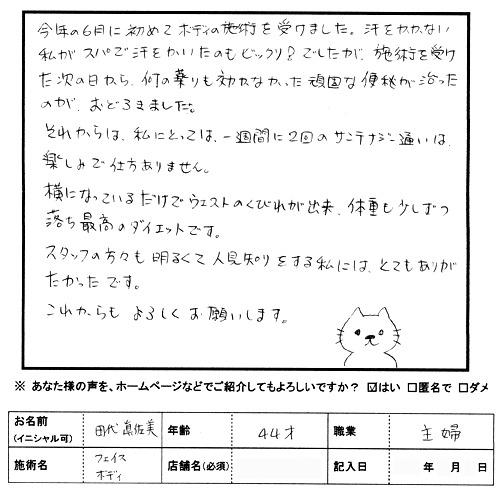 今年の6月に初めてボディの施術を受けました。汗をかかない
私がスパで汗をかいたのもビックリ?でしたが、施術を受け
た次の日から、何の薬りも効かなかった頑固な便秘が治った
のが、おどろきました。
それからは、私にとっては、一週間に2回のサンテナジー通いは、
楽しみで仕方ありません。
横になっているだけでウェストのくびれが出来、体重も少しずつ
落ち最高のダイエットです。
スタッフの方々も明るくて人見知りをする私には、とてもありが
たかったです。
これからもよろしくお願いします。
※ あなた様の声を、ホームページなどでご紹介してもよろしいですか? ☑はい □匿名で □ダメ
お名前(イニシャル可) 田代眞佐美 年齢 44才 職業 主婦
施術名 フェイス ボディ 店舗名(必須) 記入日 年 月 日